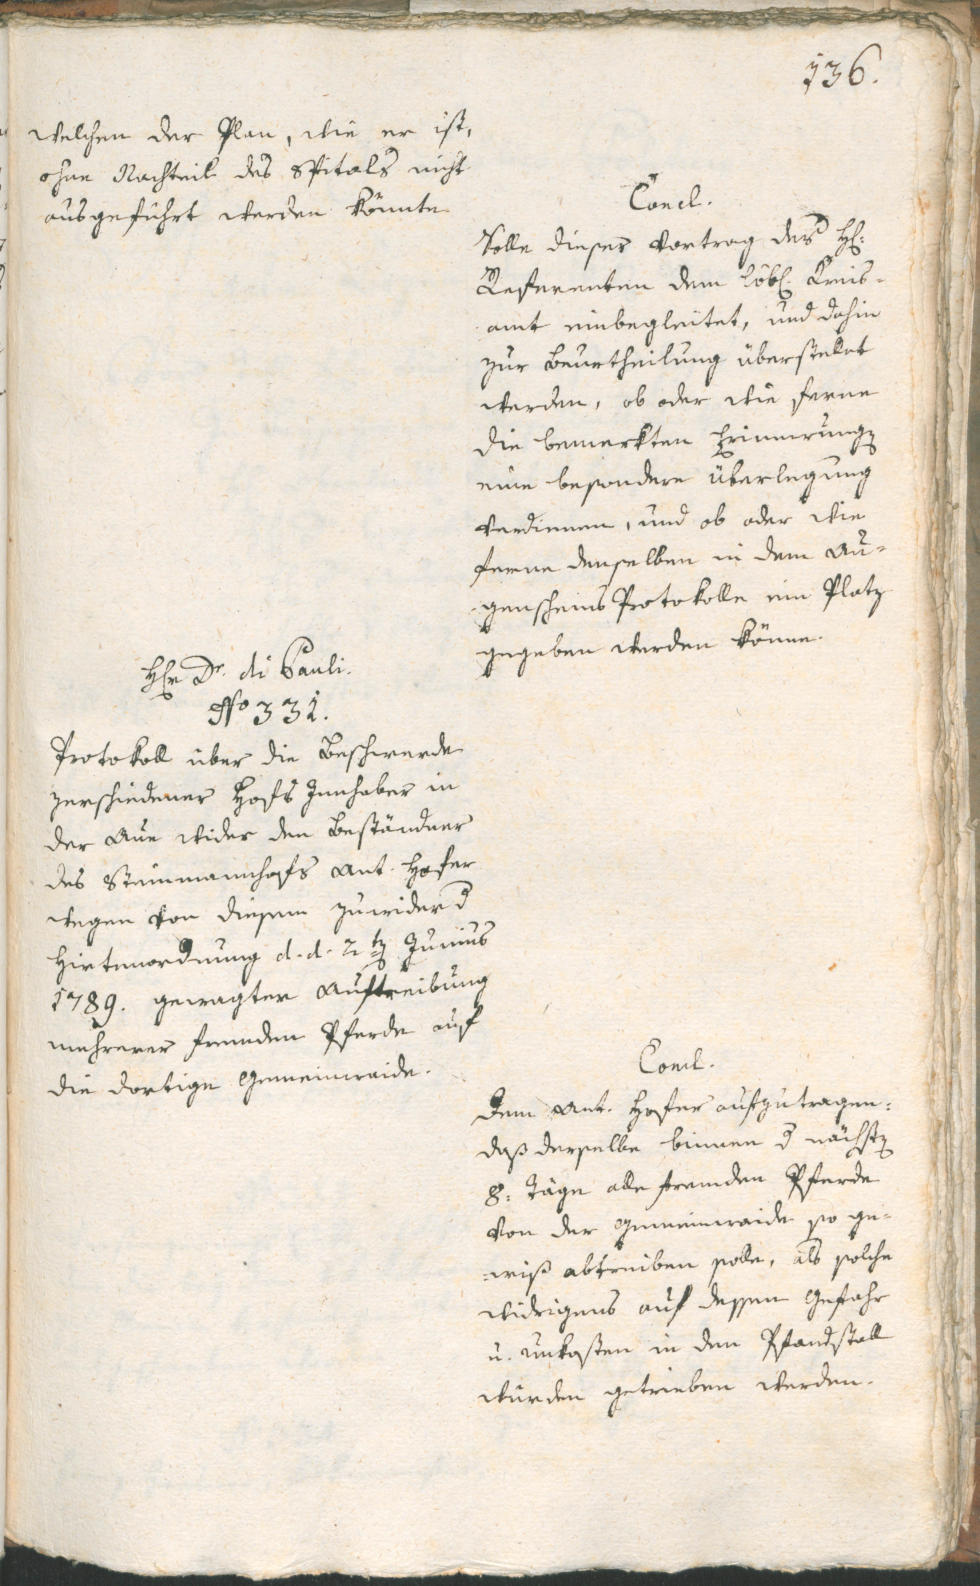 136.
welchen der Plan, wie er ist,
ohne Nachteil des Spitals nicht
ausgeführt werden könnte
Concl.
Solle dieser Vortrag des H:
Referenten dem löbl. Kreis-
amt einbegleitet, und dahin
zur Beurtheilung überstellet
werden, ob oder wie ferne
die bemerkten Erinnerung
eine besondere Überlegung
verdienen, und ob oder wie
ferne denselben in dem Au-
genscheins Protokolle ein Platz
gegeben werden könne.
Hr Dr. di Pauli.
No 331.
Protokoll über die Beschwerde
verschiedener Hofs Innhaber in
der Aue wider den Beständner
des Steinmannhofs Ant. Hofer
wegen von diesem zuwider d
Hirtenordnung d. d. 2t Junius
1789. gewagter Auftreibung
mehrerer fremden Pferde auf
die dortige Gemeinwaide.
Concl.
Dem Ant. Hofer aufzutragen:
daß derselbe binnen d nächst
8: Täge alle fremden Pferde
von der Gemeinwaide so ge-
wiß abtreiben solle, als solche
widrigens auf dessen Gefahr
u. Unkosten in den Pfandstall
würden getrieben werden.